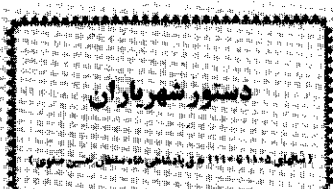 دستور شهریاران
(سالهای ۱۱۰۵ تا ۱۱۱۰ ه‍.ق پادشاهی شاه سلطان حسین صفوی)